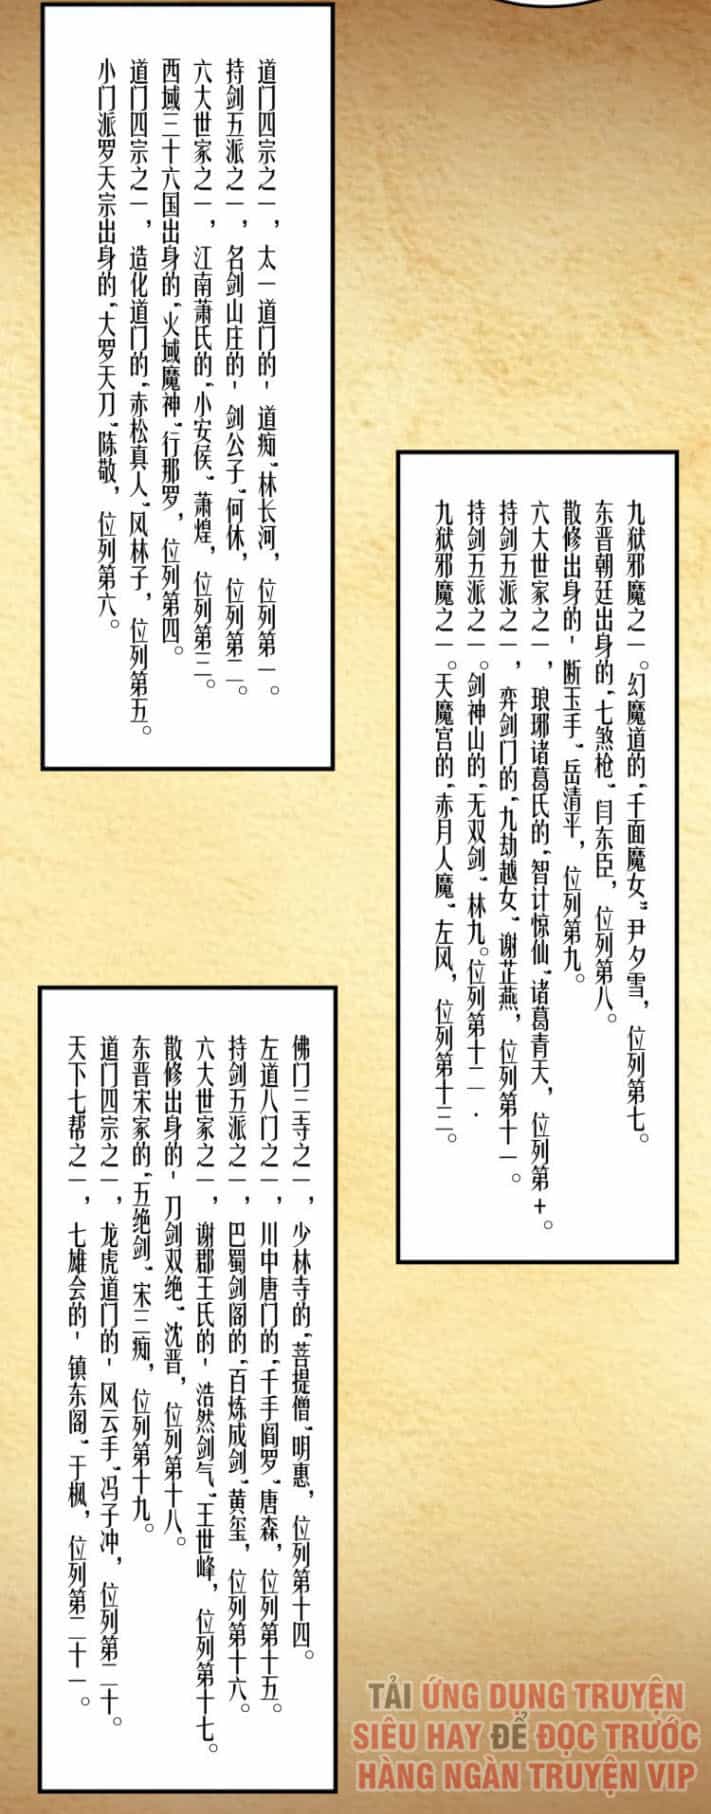 道门四宗之一，太一道门的"道痴"林长河，位列第一。
持剑五派之一，名剑山庄的"剑公子"何休，位列第二。
六大世家之一，江南萧氏的"小安侯"萧煌，位列第三。
西域三十六国出身的"火域魔神"行那罗，位列第四。
道门四宗之一，造化道门的"赤松真人"风林子，位列第五。
小门派罗天宗出身的"大罗天刀"陈敬，位列第六。
九狱邪魔之一。幻魔道的"千面魔女"尹夕雪，位列第七。
东晋朝廷出身的"七煞枪"闫东臣，位列第八。
散修出身的"断玉手"岳清平，位列第九。
六大世家之一，琅琊诸葛氏的"智计惊仙"诸葛青天，位列第+。
持剑五派之一，弈剑门的"九劫越女"谢芷燕，位列第十一。
持剑五派之一。剑神山的"无双剑"林九。位列第十二．
九狱邪魔之一。天魔宫的"赤月人魔"左风，位列第十三。
佛门三寺之一，少林寺的"菩提僧"明惠，位列第十四。
左道八门之一，川中唐门的"千手阎罗"唐森，位列第十五。
持剑五派之一，巴蜀剑阁的"百炼成剑"黄玺，位列第十六。
六大世家之一，谢郡王氏的"浩然剑气"王世峰，位列第十七。
散修出身的"刀剑双绝"沈晋，位列第十八。
东晋宋家的"五绝剑"宋三痴，位列第十九。
道门四宗之一，龙虎道门的"风云手"冯子冲，位列第二十。
天下七帮之一，七雄会的"镇东阁"于枫，位列第二十一。
TẢI ỨNG DỤNG TRUYỆN
SIÊU HAY ĐỂ ĐỌC TRƯỚC
HÀNG NGÀN TRUYỆN VIP